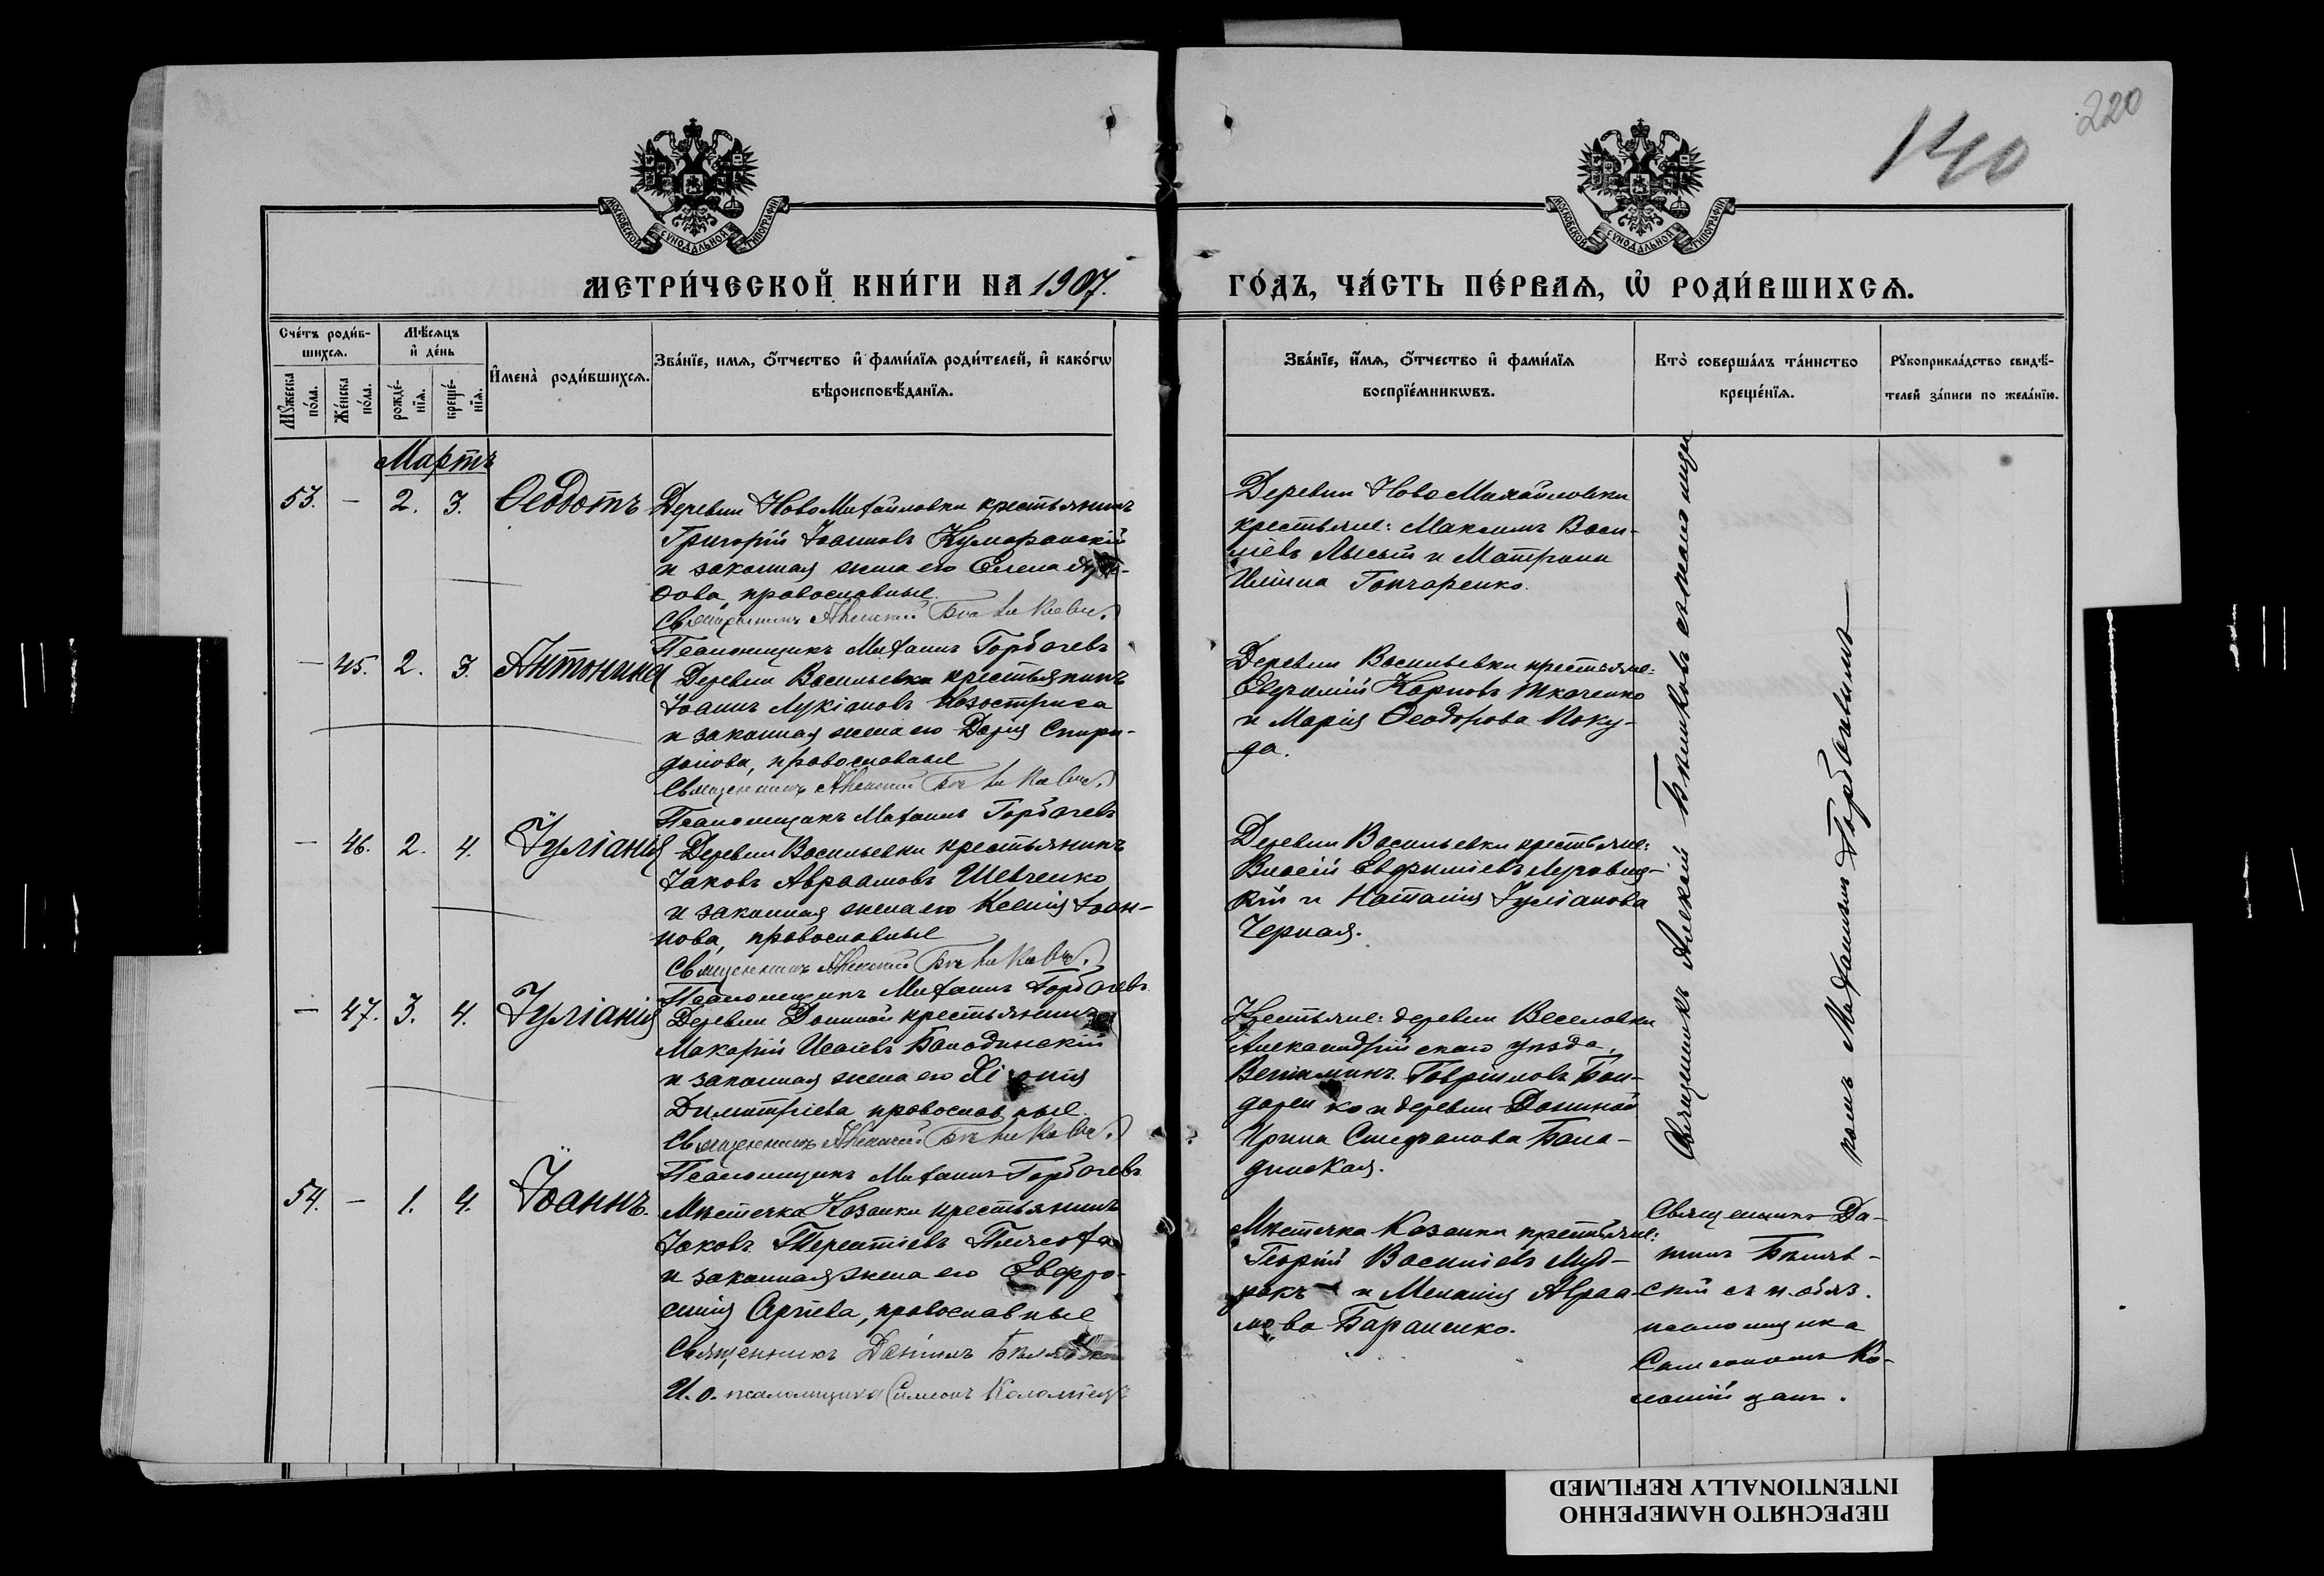 220
140
МОСКОВСКОЙ СѴНОДАЛЬНОЙ ТИПОГРАФІИ
МОСКОВСКОЙ СѴНОДАЛЬНОЙ ТИПОГРАФІИ
МЕТРИ́ЧЕСКОЙ КНИ́ГИ НА 1907.
ГО́ДЪ, ЧА́СТЬ ПЕ́РВАѦ, Ѡ҆ РОДИ́ВШИХСѦ.
Сче́тъ роди́в-
шихсѧ.
Мѣ́сѧцъ
и҆ де́нь
Мꙋ́жеска
по́ла.
Же́нска
по́ла.
рожде́-
нїѧ.
креще́-
нїѧ.
И҆мена̀ роди́вшихсѧ.
Зва́нїе, имѧ, ѻ҆́тчество и҆ фами́лїѧ роди́телей, и҆ како́гѡ
вѣроисповѣ́данїѧ.
Зва́нїе, и҆́мѧ, ѻ҆́тчество и҆ фами́лїѧ
воспрїе́мникѡвъ.
Кто̀ соверша́лъ та́инство
креще́нїѧ.
Рꙋкоприкла́дство свидѣ́-
телей за́писи по жела́нїю.
Мартъ
53. — 2. 3. Ѳеодотъ
Деревни НовоМихайловки крестьянинъ
Григорій Іоанновъ
и законная жена его Елена
православные.
Священникъ Алексій
Псаломщикъ Михаилъ Горбачевъ
Деревни НовоМихайловки
крестьяне: Максимъ Васи-
ліевъ Лысый и Матрона
Ильина Гончаренко.
— 45. 2. 3. Антонина
Деревни Васильевки крестьянинъ
Іоаннъ Лукіановъ
и законная жена его Дарія Спири-
донова, православные
Священникъ Алексій
Псаломщикъ Михаилъ Горбачевъ
Деревни Васильевки крестьяне:
Евфимій Карповъ Ткаченко
и Марія Ѳеодорова Поку-
да.
— 46. 2. 4. Іуліанія
Деревни Васильевки крестьянинъ
Іаковъ Авраамовъ Шевченко
и законная жена его Ксенія Іоан-
нова, православные
Священникъ Алексій
Псаломщикъ Михаилъ Горбачевъ
Деревни Васильевки крестьяне:
Власій Евфиміевъ
и Наталія Іуліанова
Черная.
— 47. 3. 4. Іуліанія
Деревни Дониной крестьянинъ
Макарій Исаіевъ Баландинскій
и законная жена его
Димитріева православные.
Священникъ Алексій
Псаломщикъ Михаилъ Горбачевъ
Крестьяне: деревни Веселовки
Александрійскаго уѣзда,
Веніаминъ Гавріиловъ Бон-
даренко и деревни Дониной
Ирина Стефанова Бала-
динская.
54. — 1. 4. Іоаннъ.
Мѣстечка Казанки крестьянинъ
Іаковъ Терентіевъ
и законная жена его Евфро-
синія Сергіева, православные
Священникъ Даніилъ
И. о. псаломщика Симеонъ Коломіецъ
Мѣстечка Казанки крестьяне:
Георгій Василіевъ Муд-
ракъ и Меланія Авраа-
мова Бараненко.
Священникъ Алексій съ псаломщи-
комъ Михаиломъ Горбачевымъ
Священникъ Да-
ніилъ Бѣляв-
скій съ и. обяз.
псаломщика
Симеономъ Ко-
ломійцемъ.
ПЕРЕСНЯТО НАМЕРЕННО
INTENTIONALLY REFILMED